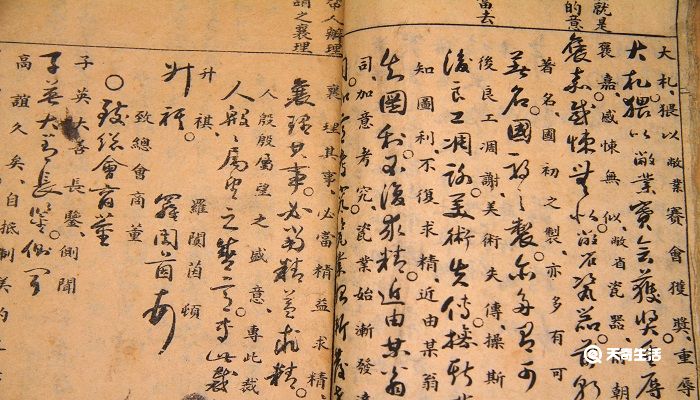 就是
的意
當去
大札猥以敝業賽會獲獎、重辱
大札。猥以敝業賽會獲獎重辱
襃嘉、感悚無似、敝省瓷器、前朝
襃嘉感悚無似。敝省瓷器。前朝
著名、國初之製、亦多有可
著名。國初之製。亦多有可
後良工凋謝、美術失傳、操斯
後良工凋謝。美術失傳。操斯
知圖利、不復求精、近由某翁
知圖利。不復求精。近由某翁
司、加意考究、瓷業始漸發達
帶人辦理
謂之襄理
襄理其事、必當精益求精
襄理其事。必當精益求精。
人殷殷屬望之盛意、專此裁
人殷殷屬望之盛意。專此裁
升祺、羅閎茵頓
升祺。羅閎茵頓
致總會商董
致總會商董
子英大善長鑒、側聞
子英大善長鑒。側聞
高誼久矣、自抵制美約
天奇生活